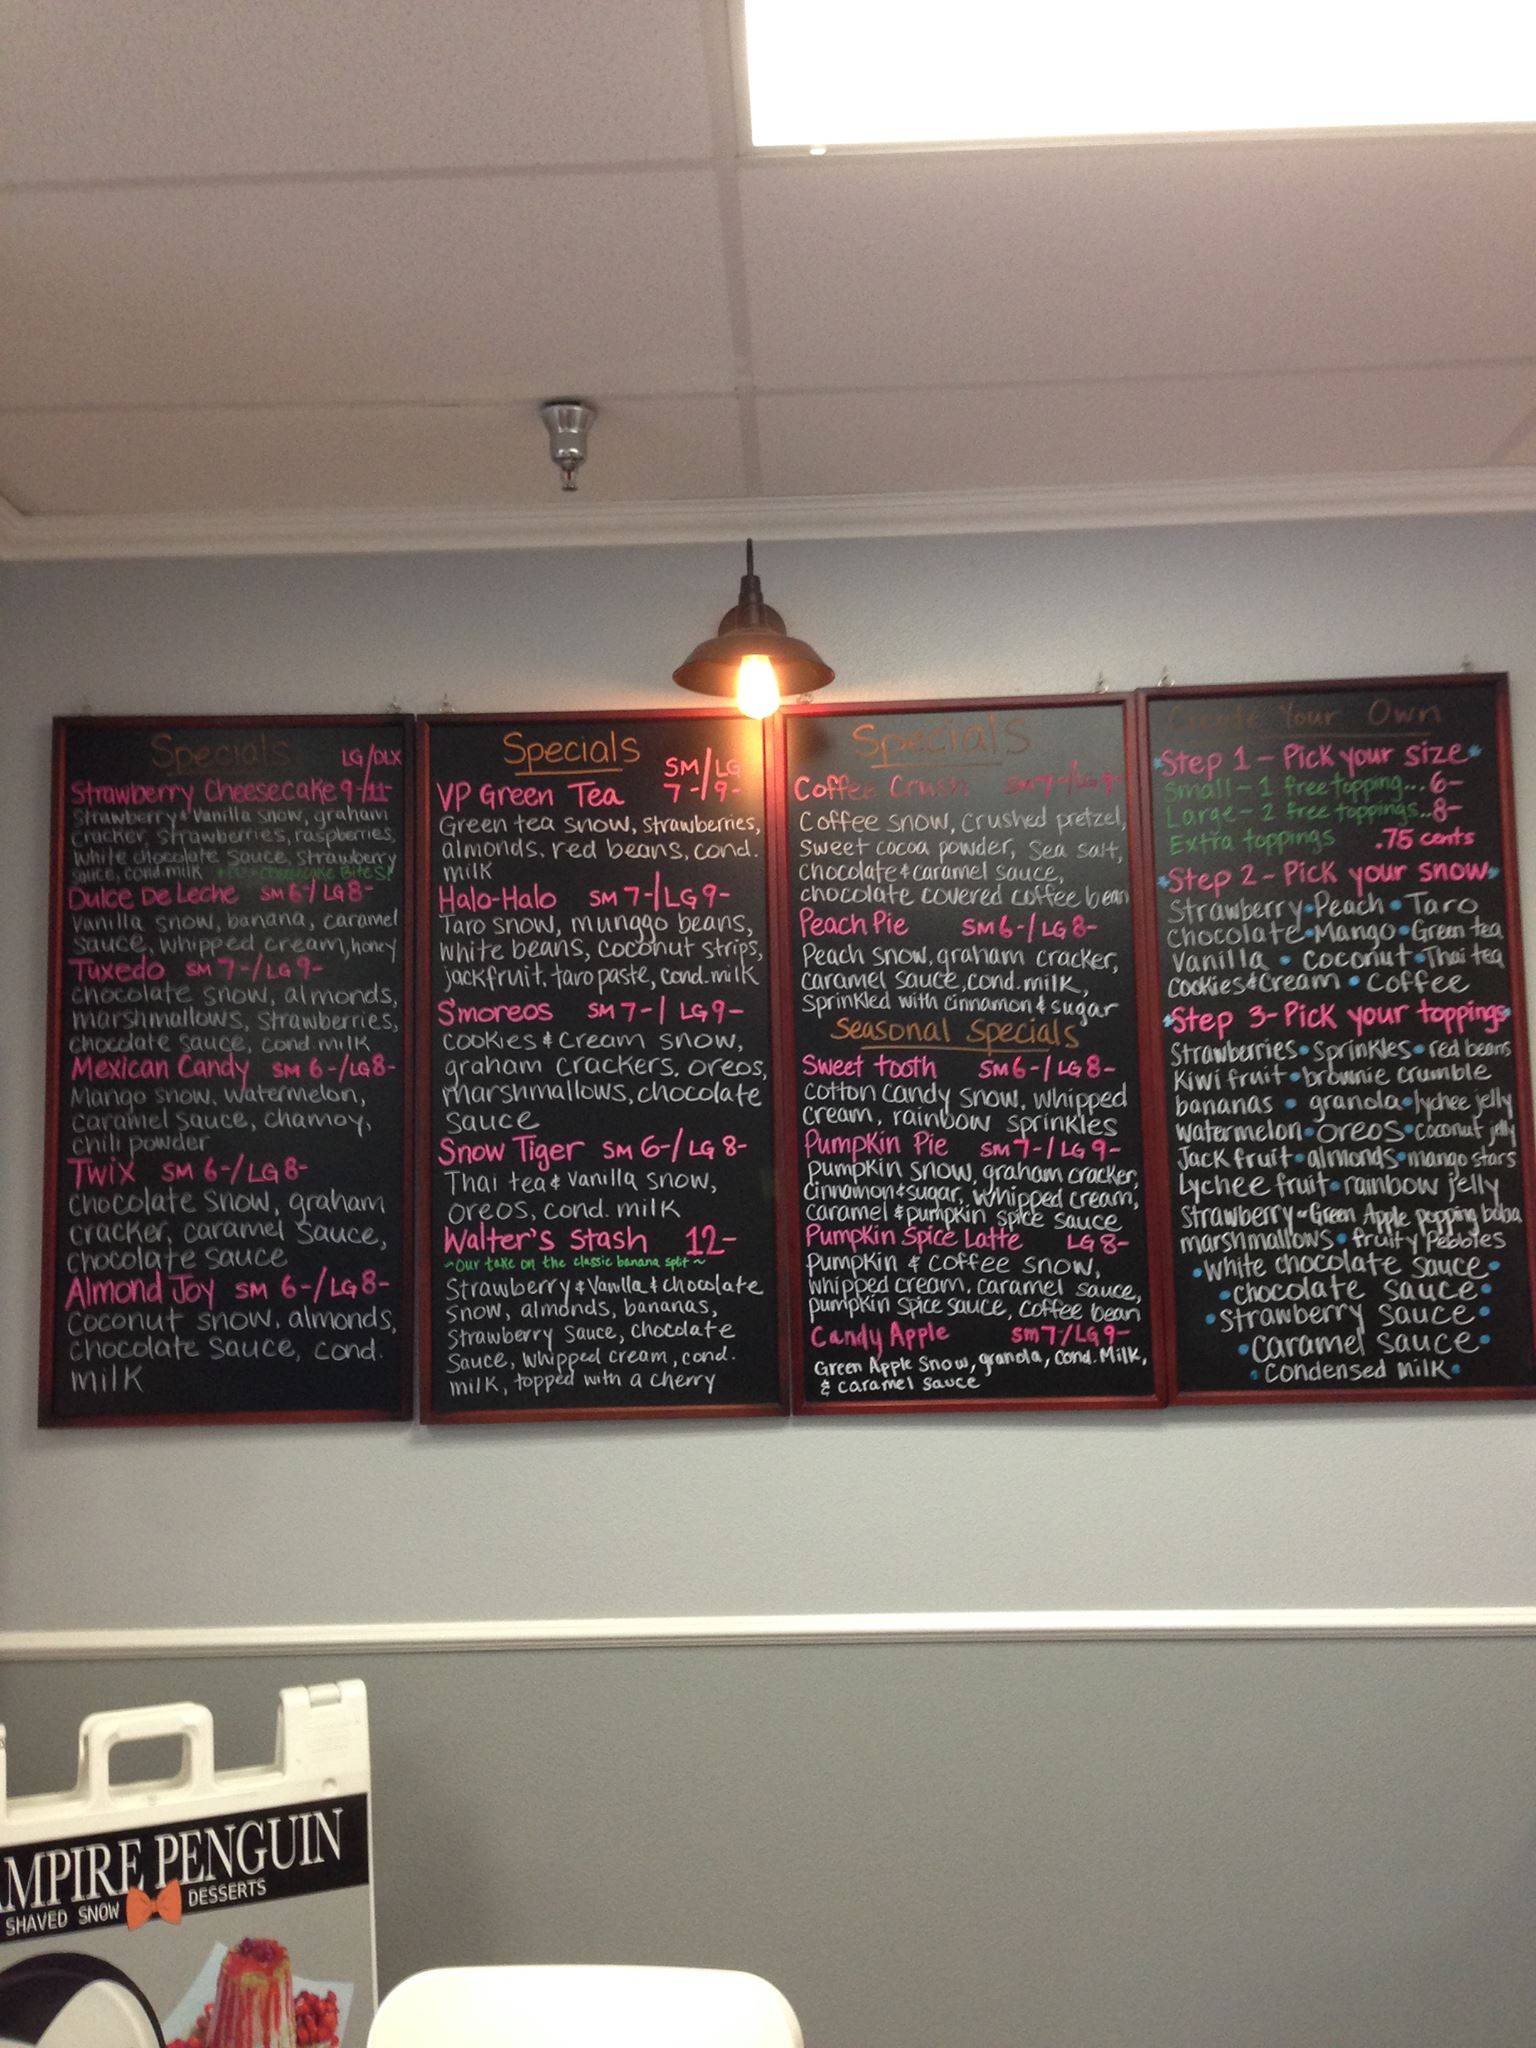 Specials LG/DLX
Strawberry Cheesecake 9-/11-
Strawberry & Vanilla snow, graham
cracker, strawberries, raspberries,
White chocolate sauce, strawberry
sauce, cond. milk Cheesecake Bites!
Dulce De Leche SM 6-/LG 8-
Vanilla snow, banana, caramel
sauce, whipped cream, honey
Tuxedo SM 7-/LG 9-
chocolate snow, almonds,
marshmallows, strawberries,
chocolate sauce, cond. milk
Mexican Candy SM 6-/LG 8-
Mango snow, watermelon,
caramel sauce, chamoy,
chili powder
Twix SM 6-/LG 8-
chocolate snow, graham
cracker, caramel sauce,
chocolate sauce
Almond Joy SM 6-/LG 8-
coconut snow, almonds,
chocolate sauce, cond.
milk
Specials SM/LG
VP Green Tea 7-/9-
Green tea snow, strawberries,
almonds, red beans, cond.
milk
Halo-Halo SM 7-/LG 9-
Taro snow, munggo beans,
white beans, coconut strips,
jackfruit, taro paste, cond. milk
S'moreos SM 7-/LG 9-
cookies & cream snow,
graham crackers, oreos,
marshmallows, chocolate
sauce
Snow Tiger SM 6-/LG 8-
Thai tea & vanilla snow,
oreos, cond. milk
Walter's Stash 12-
~Our take on the classic banana split~
Strawberry & Vanilla & chocolate
snow, almonds, bananas,
strawberry sauce, chocolate
sauce, whipped cream, cond.
milk, topped with a cherry
Specials
Coffee Crush SM 7-/LG 9-
Coffee snow, crushed pretzel,
sweet cocoa powder, sea salt,
chocolate & caramel sauce,
chocolate covered coffee bean
Peach Pie SM 6-/LG 8-
Peach snow, graham cracker,
caramel sauce, cond. milk,
sprinkled with cinnamon & sugar
Seasonal Specials
Sweet tooth SM 6-/LG 8-
cotton candy snow, whipped
cream, rainbow sprinkles
Pumpkin Pie SM 7-/LG 9-
pumpkin snow, graham cracker,
cinnamon & sugar, whipped cream,
caramel & pumpkin spice sauce
Pumpkin Spice Latte LG 8-
pumpkin & coffee snow,
whipped cream, caramel sauce,
pumpkin spice sauce, coffee bean
Candy Apple SM 7/LG 9-
Green Apple snow, granola, cond. Milk,
& caramel sauce
Create Your Own
Step 1 - Pick your size
Small - 1 free topping... 6-
Large - 2 free toppings.. 8-
Extra toppings .75 cents
Step 2 - Pick your snow
Strawberry • Peach • Taro
chocolate • Mango • Green tea
Vanilla • coconut • Thai tea
cookies & cream • coffee
Step 3 - Pick your toppings
Strawberries • sprinkles • red beans
kiwi fruit • brownie crumble
bananas • granola • lychee jelly
watermelon • oreos • coconut jelly
Jackfruit • almonds • mango stars
Lychee fruit • rainbow jelly
Strawberry - Green Apple popping boba
marshmallows • fruity pebbles
• white chocolate sauce •
• chocolate sauce •
• Strawberry sauce •
• caramel sauce •
• condensed milk •
MPIRE PENGUIN
SHAVED SNOW DESSERTS